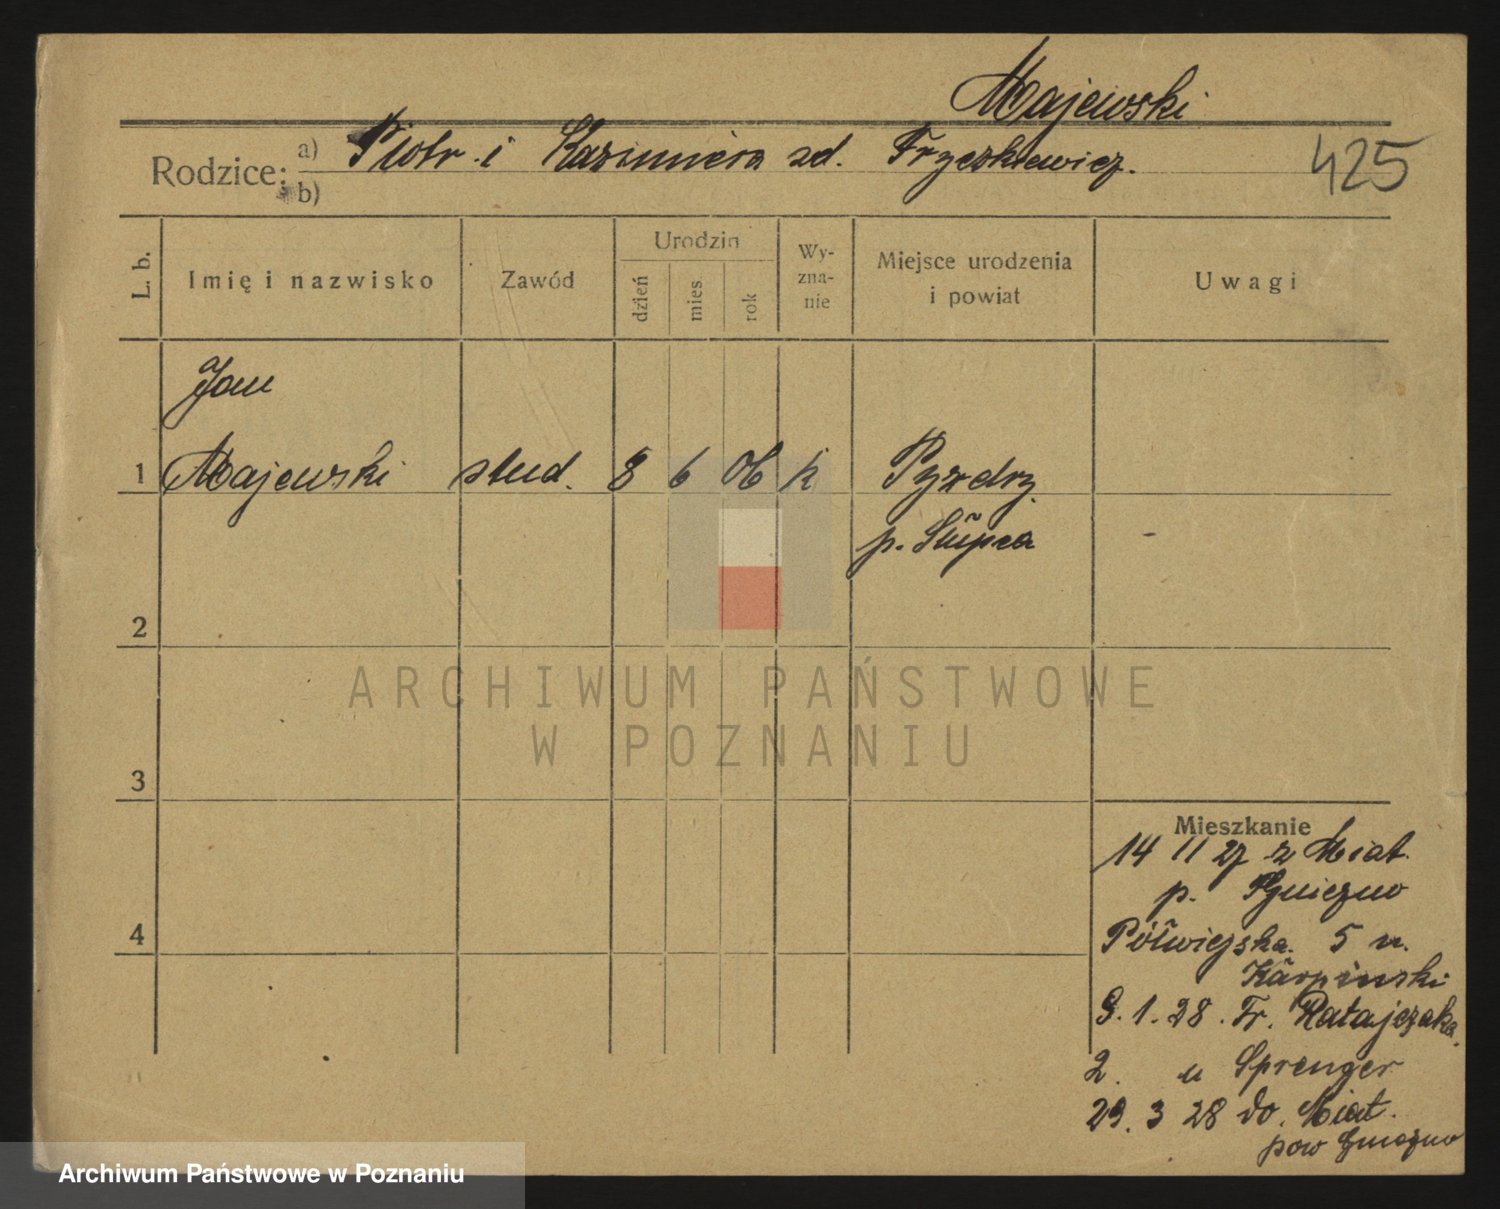 Majewski
Rodzice: a) Piotr i Kazimiera zd. Trzeszkiewicz.
b)
425
L. b. Imię i nazwisko Zawód Urodzin dzień mies rok Wy-zna-nie Miejsce urodzenia i powiat Uwagi
Jan
1 Majewski stud. 8 6 06 k Pyzdry
p. Słupca
2
ARCHIWUM PAŃSTWOWE
W POZNANIU
3
Mieszkanie
14 11 27 z Miat.
p. Gniezno
4 Półwiejska 5 u.
Karpinski
9. 1. 28. Fr. Ratajczaka
2. u Sprenger
29. 3 28 do. Miat.
pow Gniezno
Archiwum Państwowe w Poznaniu